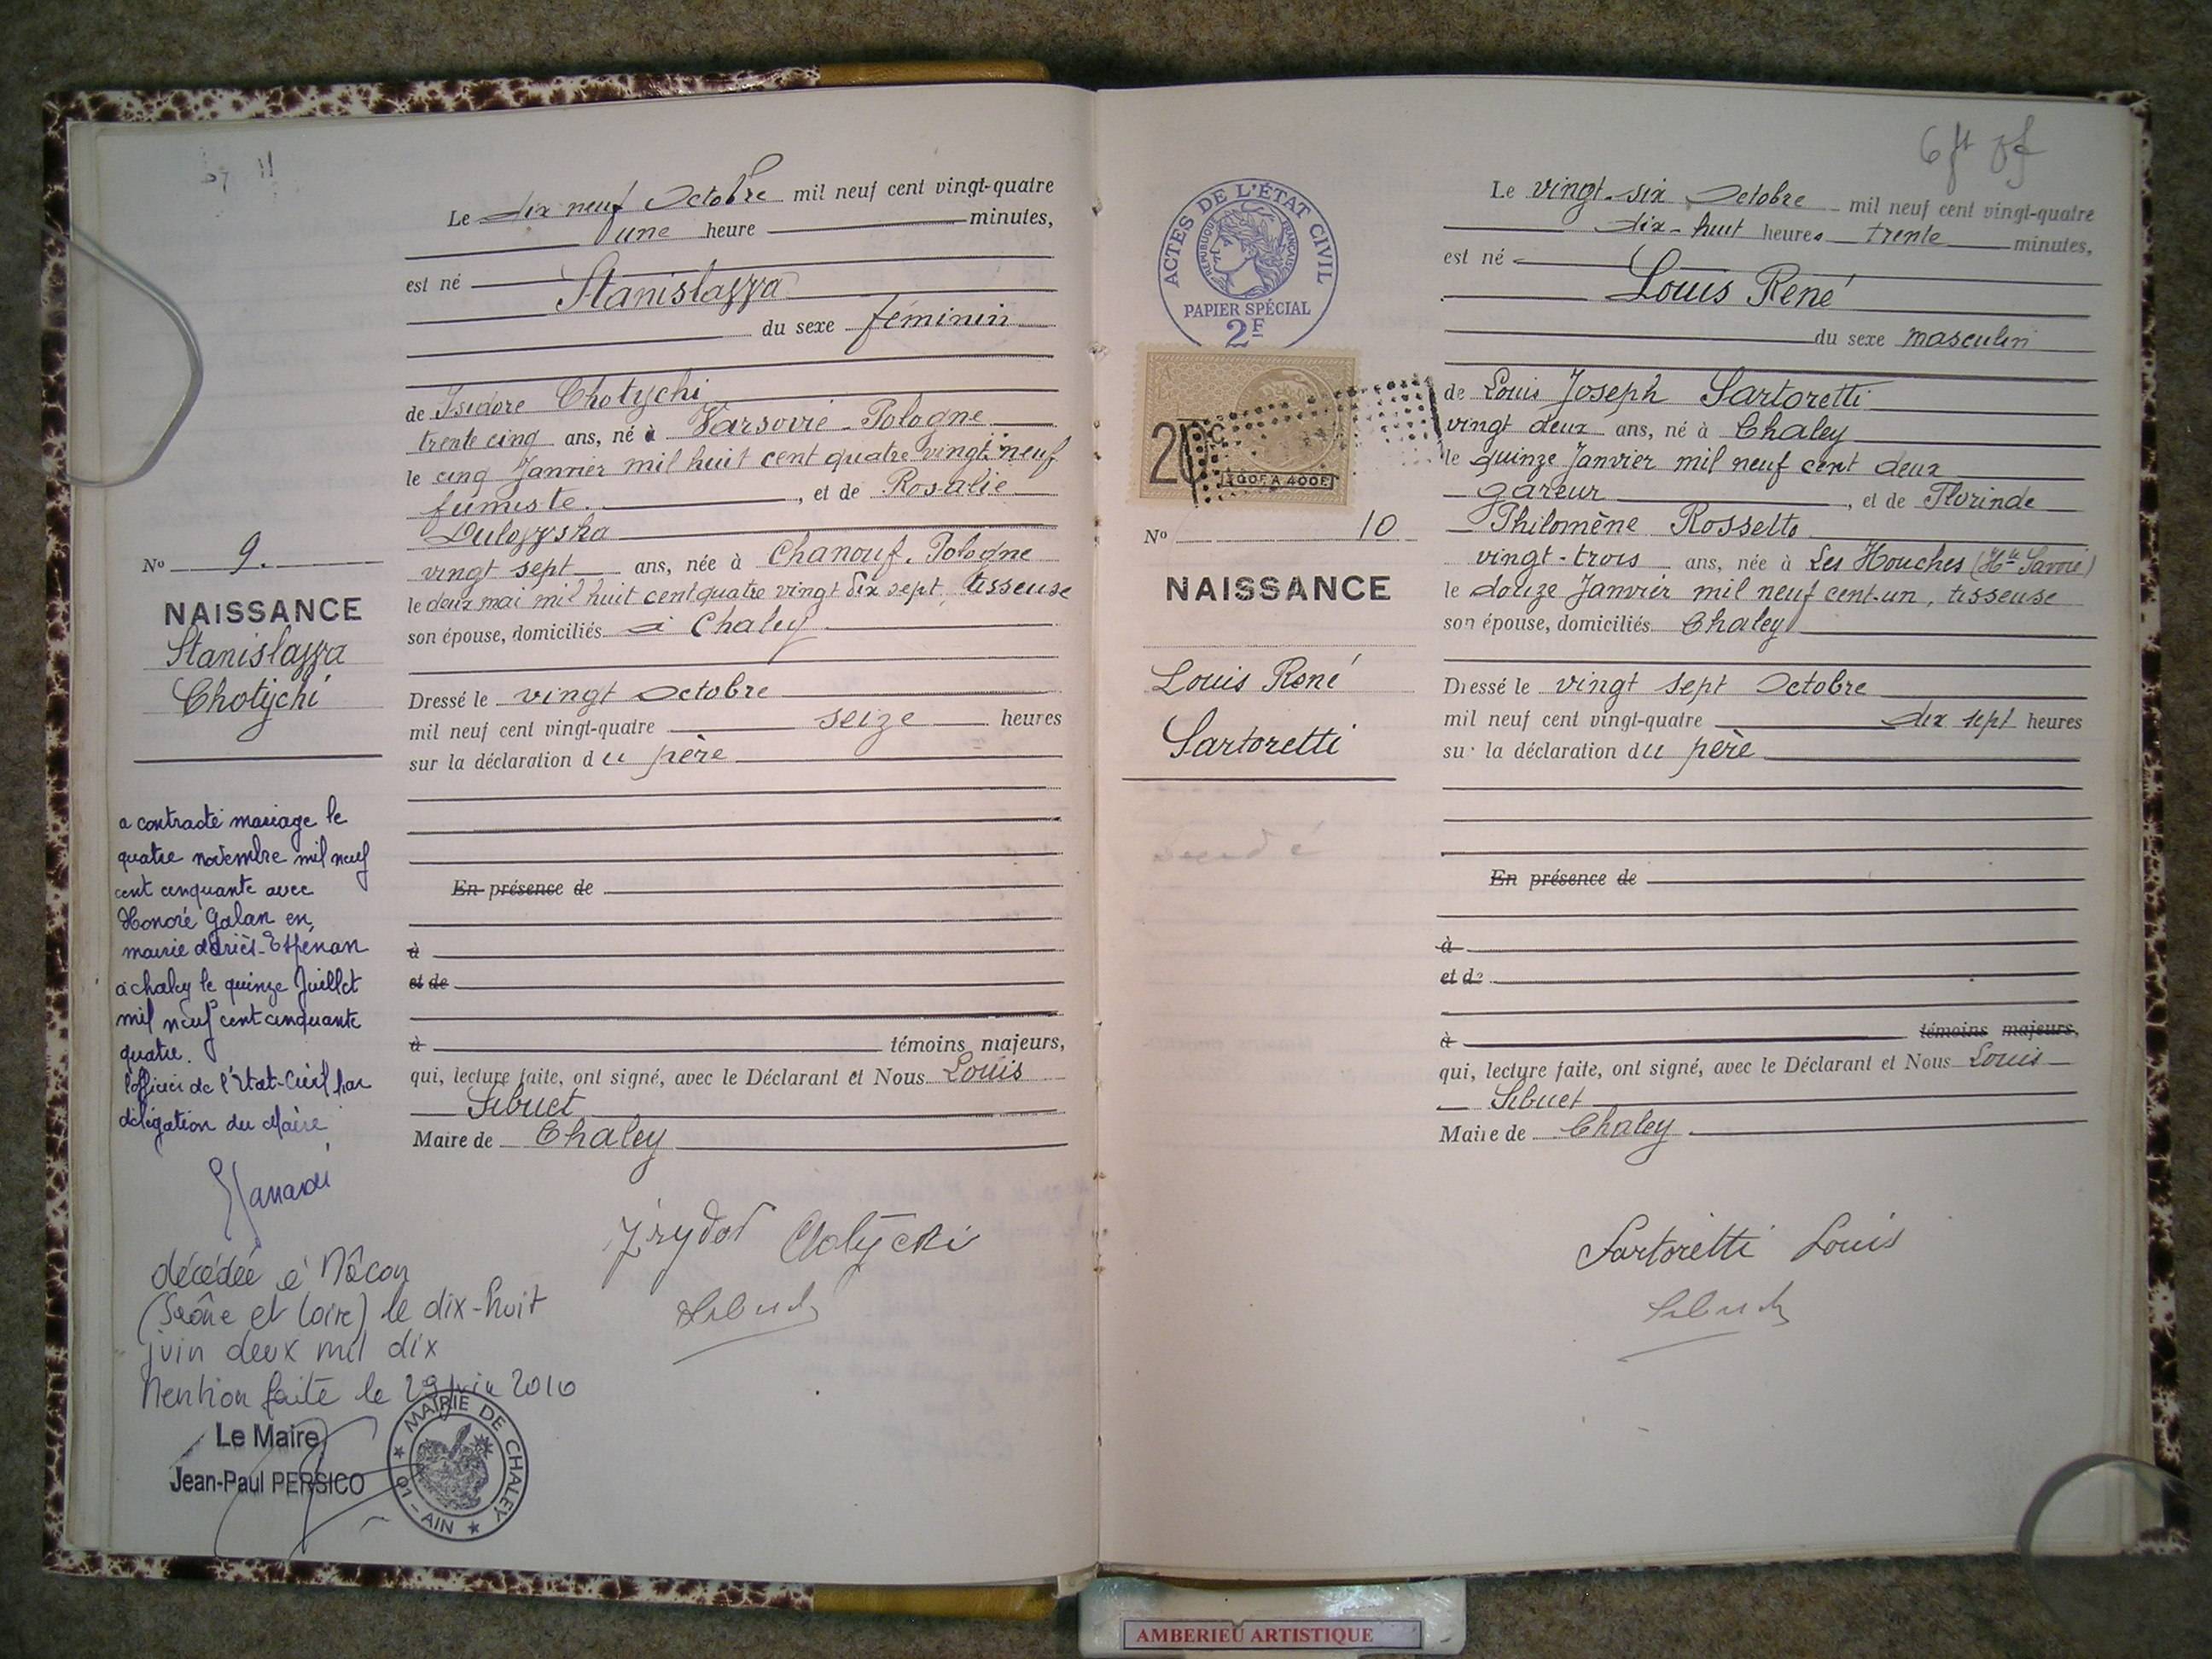 Le dix neuf Octobre mil neuf cent vingt-quatre
une heure minutes,
est né
Stanislazza
du sexe féminin
de Isidore Chotychi
trente cinq ans, né à Varsovie - Pologne
le cinq Janvier mil huit cent quatre vingt neuf
fumiste. , et de Rosalie
Dulozzska
vingt sept ans, née à Chanouf. Pologne
le deux mai mil huit cent quatre vingt dix sept, tisseuse
son épouse, domiciliés à Chaley
Dressé le vingt Octobre
mil neuf cent vingt-quatre seize heures
sur la déclaration du père
En présence de
à
et de
à témoins majeurs,
qui, lecture faite, ont signé, avec le Déclarant et Nous Louis
Sibuet
Maire de Chaley
Chotycki
No 9.
NAISSANCE
Stanislazza
Chotychi
a contracté mariage le
quatre novembre mil neuf
cent cinquante avec
Honoré Galan en
mairie d'Ariès-Espénan
à chaley le quinze Juillet
mil neuf cent cinquante
quatre.
l'officier de l'Etat-Civil par
délégation du Maire
décédée à Mâcon
(Saône et Loire) le dix-huit
juin deux mil dix
Mention faite le 29 juin 2010
Le Maire
Jean-Paul PERSICO
MAIRIE DE CHALEY
01 - AIN
ACTES DE L'ÉTAT CIVIL
RÉPUBLIQUE FRANÇAISE
PAPIER SPÉCIAL
2F
20c
No 10
NAISSANCE
Louis René
Sartoretti
Le vingt-six Octobre mil neuf cent vingt-quatre
dix-huit heures trente minutes,
est né
Louis René
du sexe masculin
de Louis Joseph Sartoretti
vingt deux ans, né à Chaley
le quinze Janvier mil neuf cent deux
gareur , et de Florinde
Philomène Rossetto
vingt-trois ans, née à Les Houches (Hte Savoie)
le douze Janvier mil neuf cent-un, tisseuse
son épouse, domiciliés Chaley
Dressé le vingt sept Octobre
mil neuf cent vingt-quatre dix sept heures
sur la déclaration du père
En présence de
à
et de
à témoins majeurs,
qui, lecture faite, ont signé, avec le Déclarant et Nous Louis
Sibuet
Maire de Chaley
Sartoretti Louis
AMBERIEU ARTISTIQUE